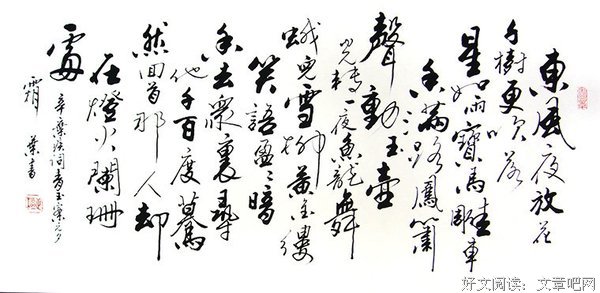 東風夜放花
千樹更吹落
星如雨寶馬雕車
香滿路鳳簫
聲動玉壺
光轉一夜魚龍舞
蛾兒雪柳黃金縷
笑語盈々暗
香去衆裏尋
他千百度驀
然回首那人却
在燈火闌珊
處
辛棄疾詞青玉案元夕
霜葉書
好文阅读：文章吧网